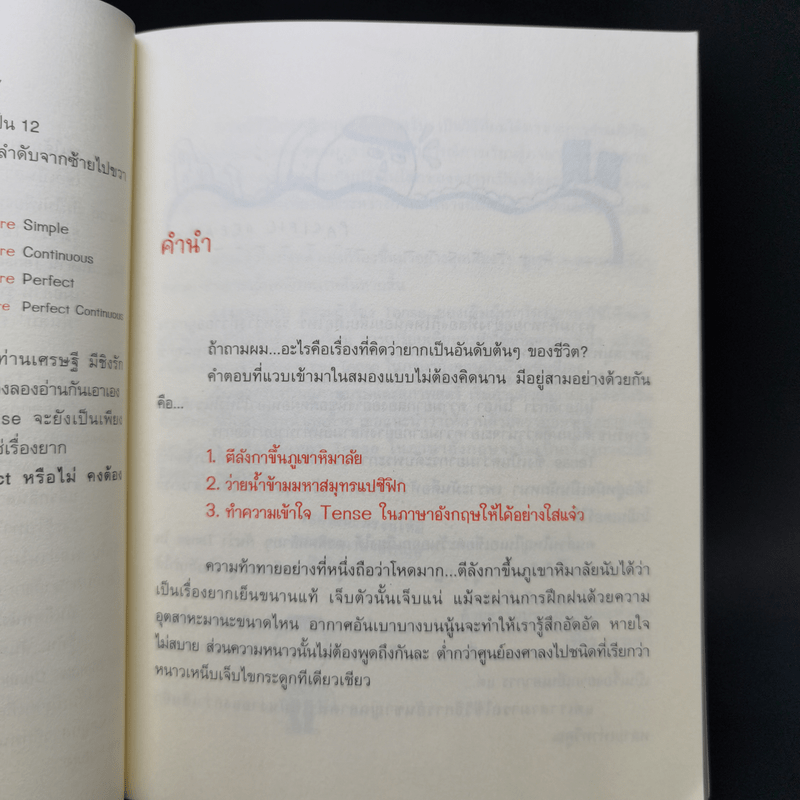 ป็น 12
ลำดับจากซ้ายไปขวา
re Simple
re Continuous
re Perfect
re Perfect Continuous
ท่านเศรษฐี มีชิงรัก
องลองอ่านกันเอาเอง
se จะยังเป็นเพียง
ช่เรื่องยาก
ct หรือไม่ คงต้อง
คำนำ
ถ้าถามผม...อะไรคือเรื่องที่คิดว่ายากเป็นอันดับต้นๆ ของชีวิต?
คำตอบที่แวบเข้ามาในสมองแบบไม่ต้องคิดนาน มีอยู่สามอย่างด้วยกัน
คือ...
1. ตีลังกาขึ้นภูเขาหิมาลัย
2. ว่ายน้ำข้ามมหาสมุทรแปซิฟิก
3. ทำความเข้าใจ Tense ในภาษาอังกฤษให้ได้อย่างใสแจ๋ว
ความท้าทายอย่างที่หนึ่งถือว่าโหดมาก...ตีลังกาขึ้นภูเขาหิมาลัยนับได้ว่า
เป็นเรื่องยากเย็นขนานแท้ เจ็บตัวนั้นเจ็บแน่ แม้จะผ่านการฝึกฝนด้วยความ
อุตสาหะมานะขนาดไหน อากาศอันเบาบางบนนู้นจะทำให้เรารู้สึกอัดอัด หายใจ
ไม่สบาย ส่วนความหนาวนั้นไม่ต้องพูดถึงกันละ ต่ำกว่าศูนย์องศาลงไปชนิดที่เรียกว่า
หนาวเหน็บเจ็บไขกระดูกทีเดียวเชียว